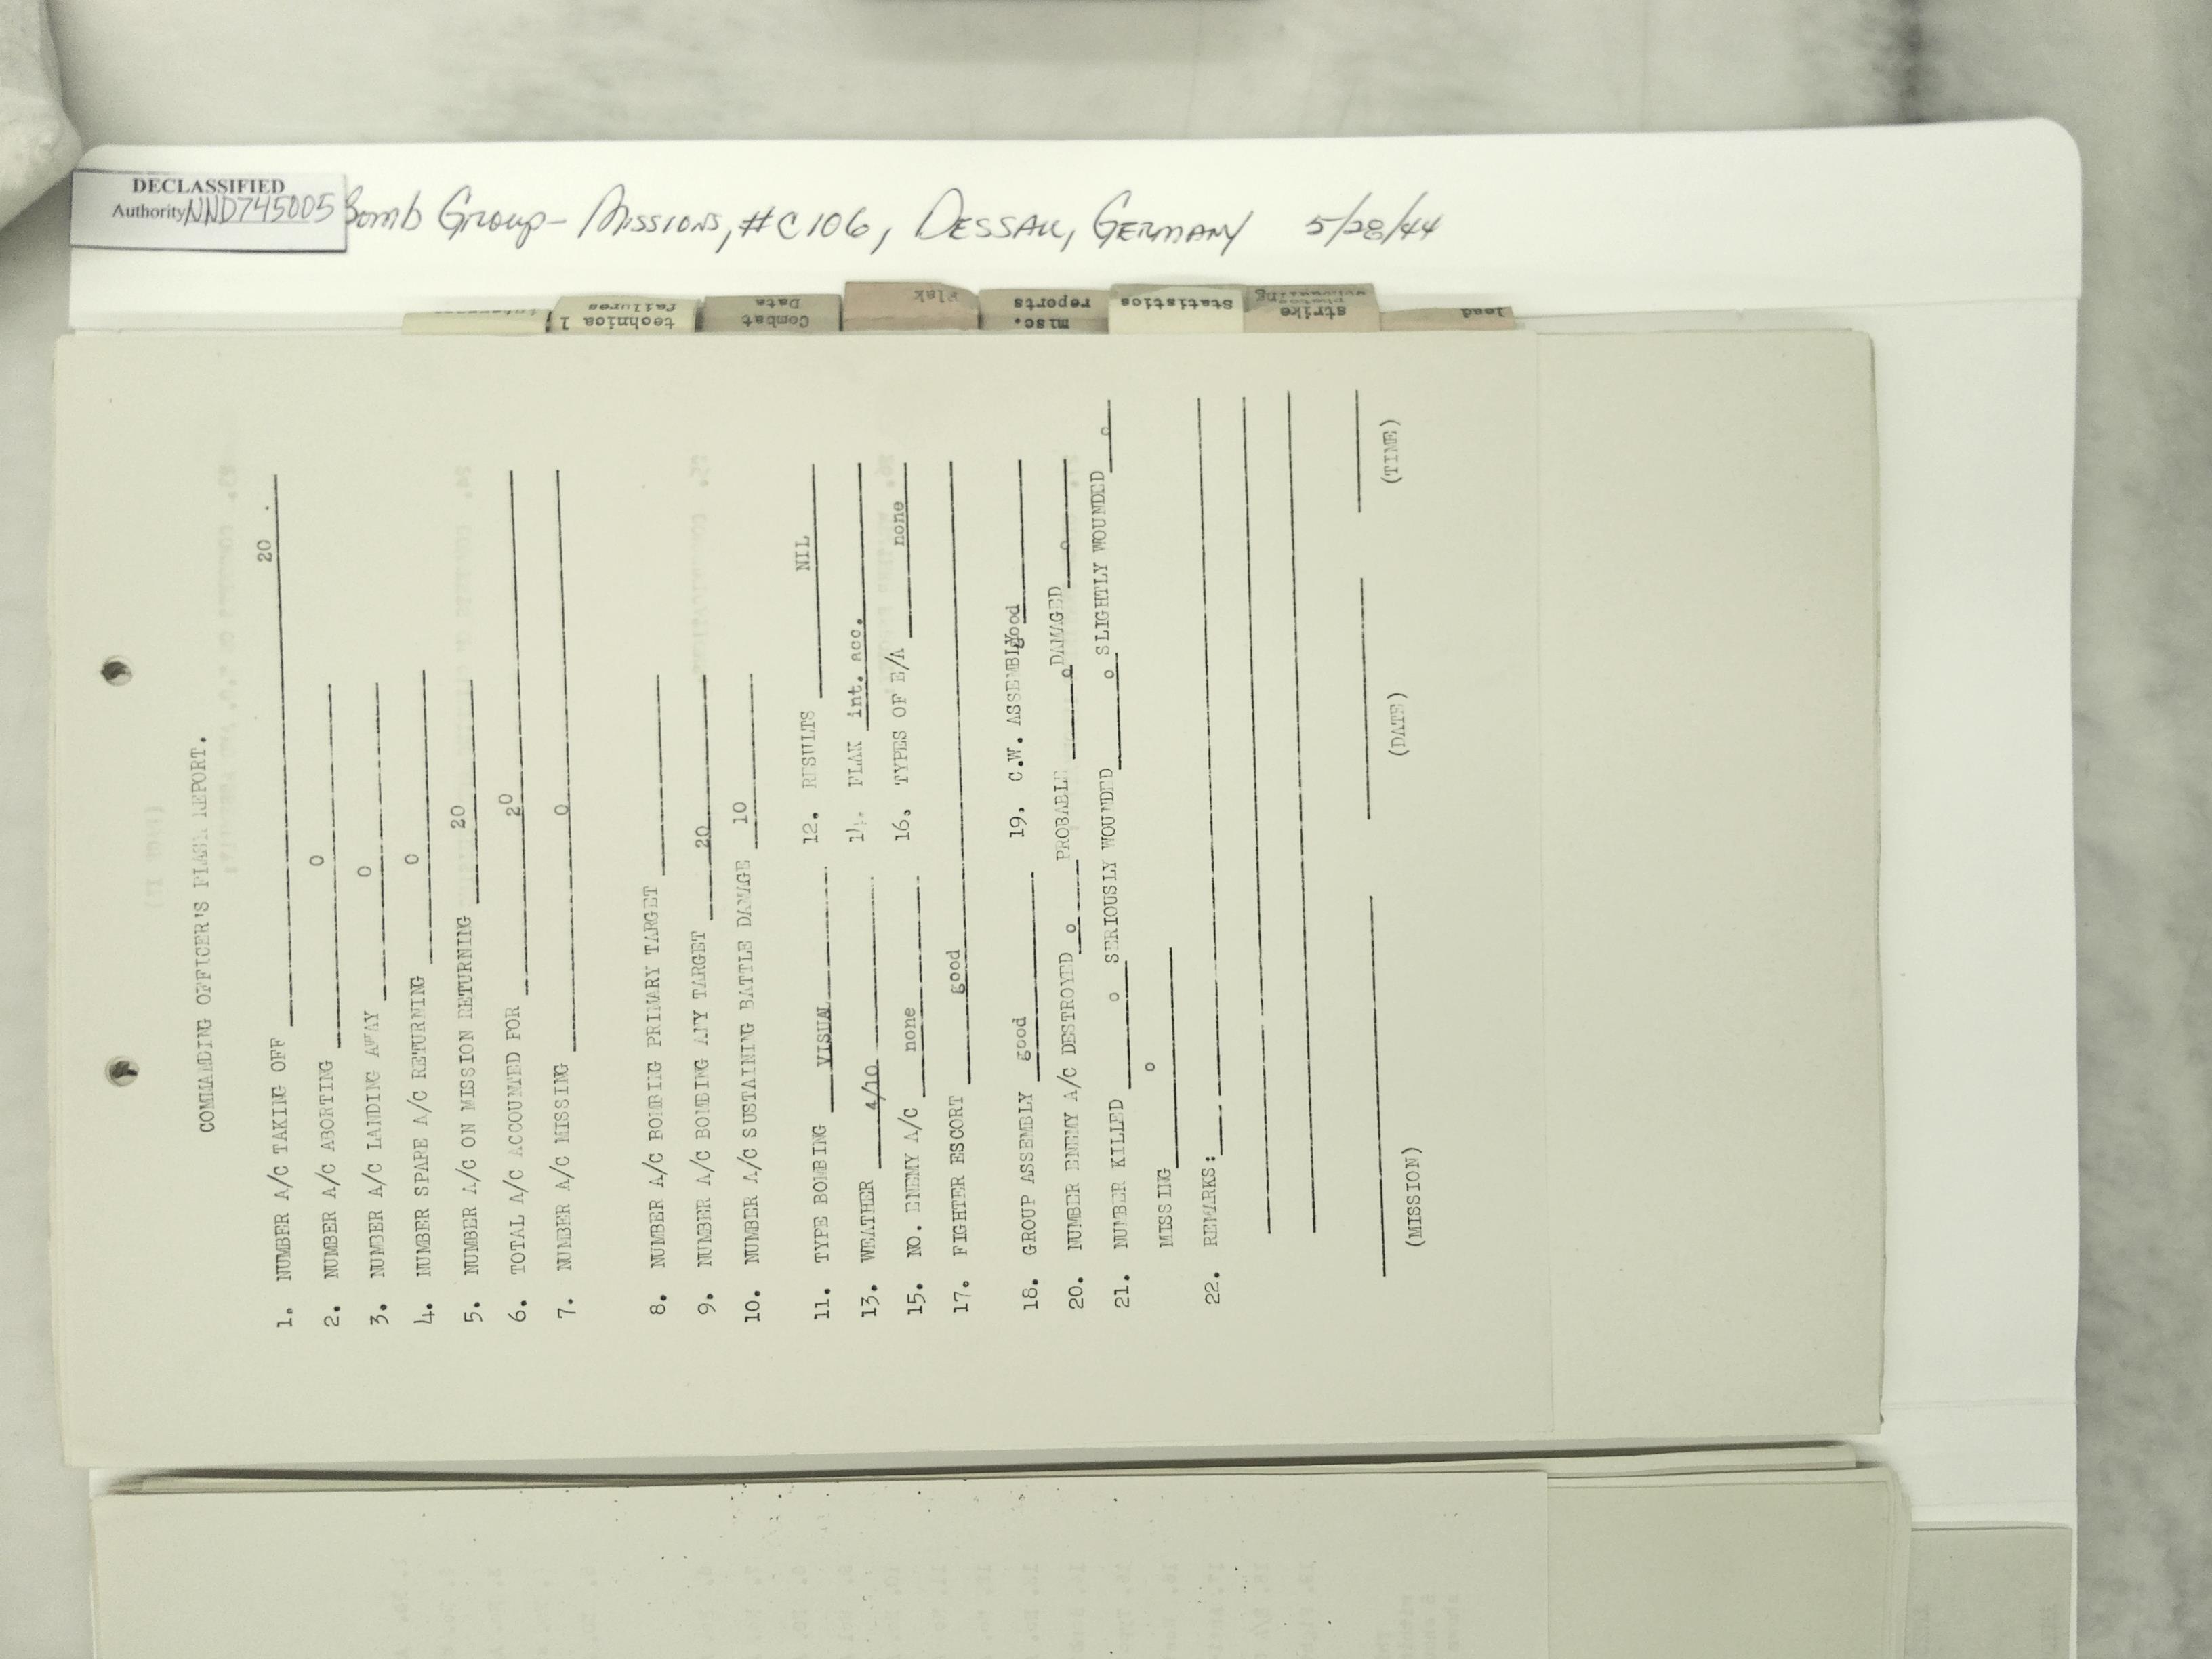 DECLASSIFIED
Authority NND745005
Bomb Group - Missions, #C106, Dessau, Germany 5/28/44
technical failures
Combat Data
Flak
misc. reports
Statistics
strike
lead
COMMANDING OFFICER'S FLASH REPORT.
1. NUMBER A/C TAKING OFF 20 .
2. NUMBER A/C ABORTING 0
3. NUMBER A/C LANDING AWAY 0
4. NUMBER SPARE A/C RETURNING 0
5. NUMBER A/C ON MISSION RETURNING 20
6. TOTAL A/C ACCOUNTED FOR 20
7. NUMBER A/C MISSING 0
8. NUMBER A/C BOMBING PRIMARY TARGET
9. NUMBER A/C BOMBING ANY TARGET 20
10. NUMBER A/C SUSTAINING BATTLE DAMAGE 10
11. TYPE BOMBING VISUAL 12. RESULTS NIL
13. WEATHER 4/10 14. FLAK int. acc.
15. NO. ENEMY A/C none 16. TYPES OF E/A none
17. FIGHTER ESCORT good
18. GROUP ASSEMBLY good 19. C.W. ASSEMBLY good
20. NUMBER ENEMY A/C DESTROYED o PROBABLE o DAMAGED o
21. NUMBER KILLED o SERIOUSLY WOUNDED o SLIGHTLY WOUNDED o
MISSING o
22. REMARKS:
(MISSION) (DATE) (TIME)